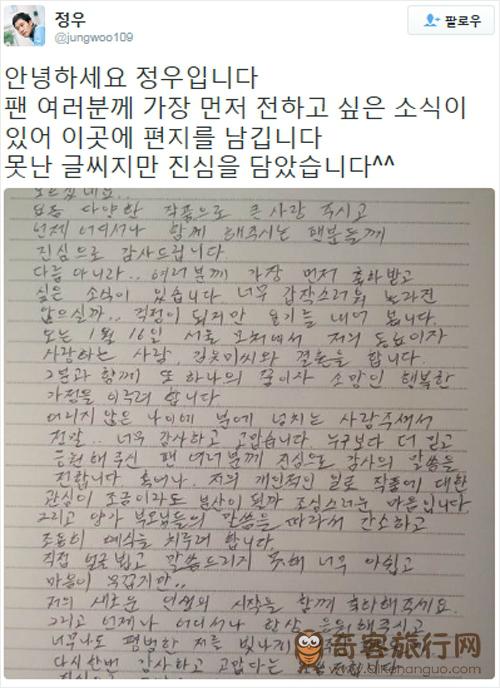 정우
@jungwoo109
팔로우
안녕하세요 정우입니다
팬 여러분께 가장 먼저 전하고 싶은 소식이
있어 이곳에 편지를 남깁니다
못난 글씨지만 진심을 담았습니다^^
다양한 작품으로 큰 사랑 주시고
언제 어디서나 함께 해주시는 팬분들께
진심으로 감사드립니다.
다름 아니라.. 여러분께 가장 먼저 축하받고
싶은 소식이 있습니다. 너무 갑작스러워 놀라진
않으실까.. 걱정이 되지만 용기를 내어 봅니다.
오는 1월 16일 서울 모처에서 저의 동료이자
사랑하는 사람, 김유미씨와 결혼을 합니다.
그분과 함께 또 하나의 꿈이자 소망인 행복한
가정을 이루려 합니다
어리지 않은 나이에 분에 넘치는 사랑주셔서
정말.. 너무 감사하고 고맙습니다. 누구보다 더 믿고
응원해주신 팬 여러분께 진심으로 감사의 말씀을
전합니다 혹여나. 저의 개인적인 일로 작품에 대한
관심이 조금이라도 분산이 될까 조심스러운 마음입니다
그리고 양가 부모님들의 말씀을 따라서 간소하고
조용히 예식을 치루려 합니다.
직접 얼굴뵙고 말씀드리지 못해 너무 아쉽고
마음이 무겁지만..
저의 새로운 인생의 시작을 함께 축하해주세요.
그리고 언제나 어디서나 항상 응원해주시고
너무나도 평범한 저를 빛나게
다시한번 감사하고 고맙다는
奇客旅行网
www.qikehanguo.com